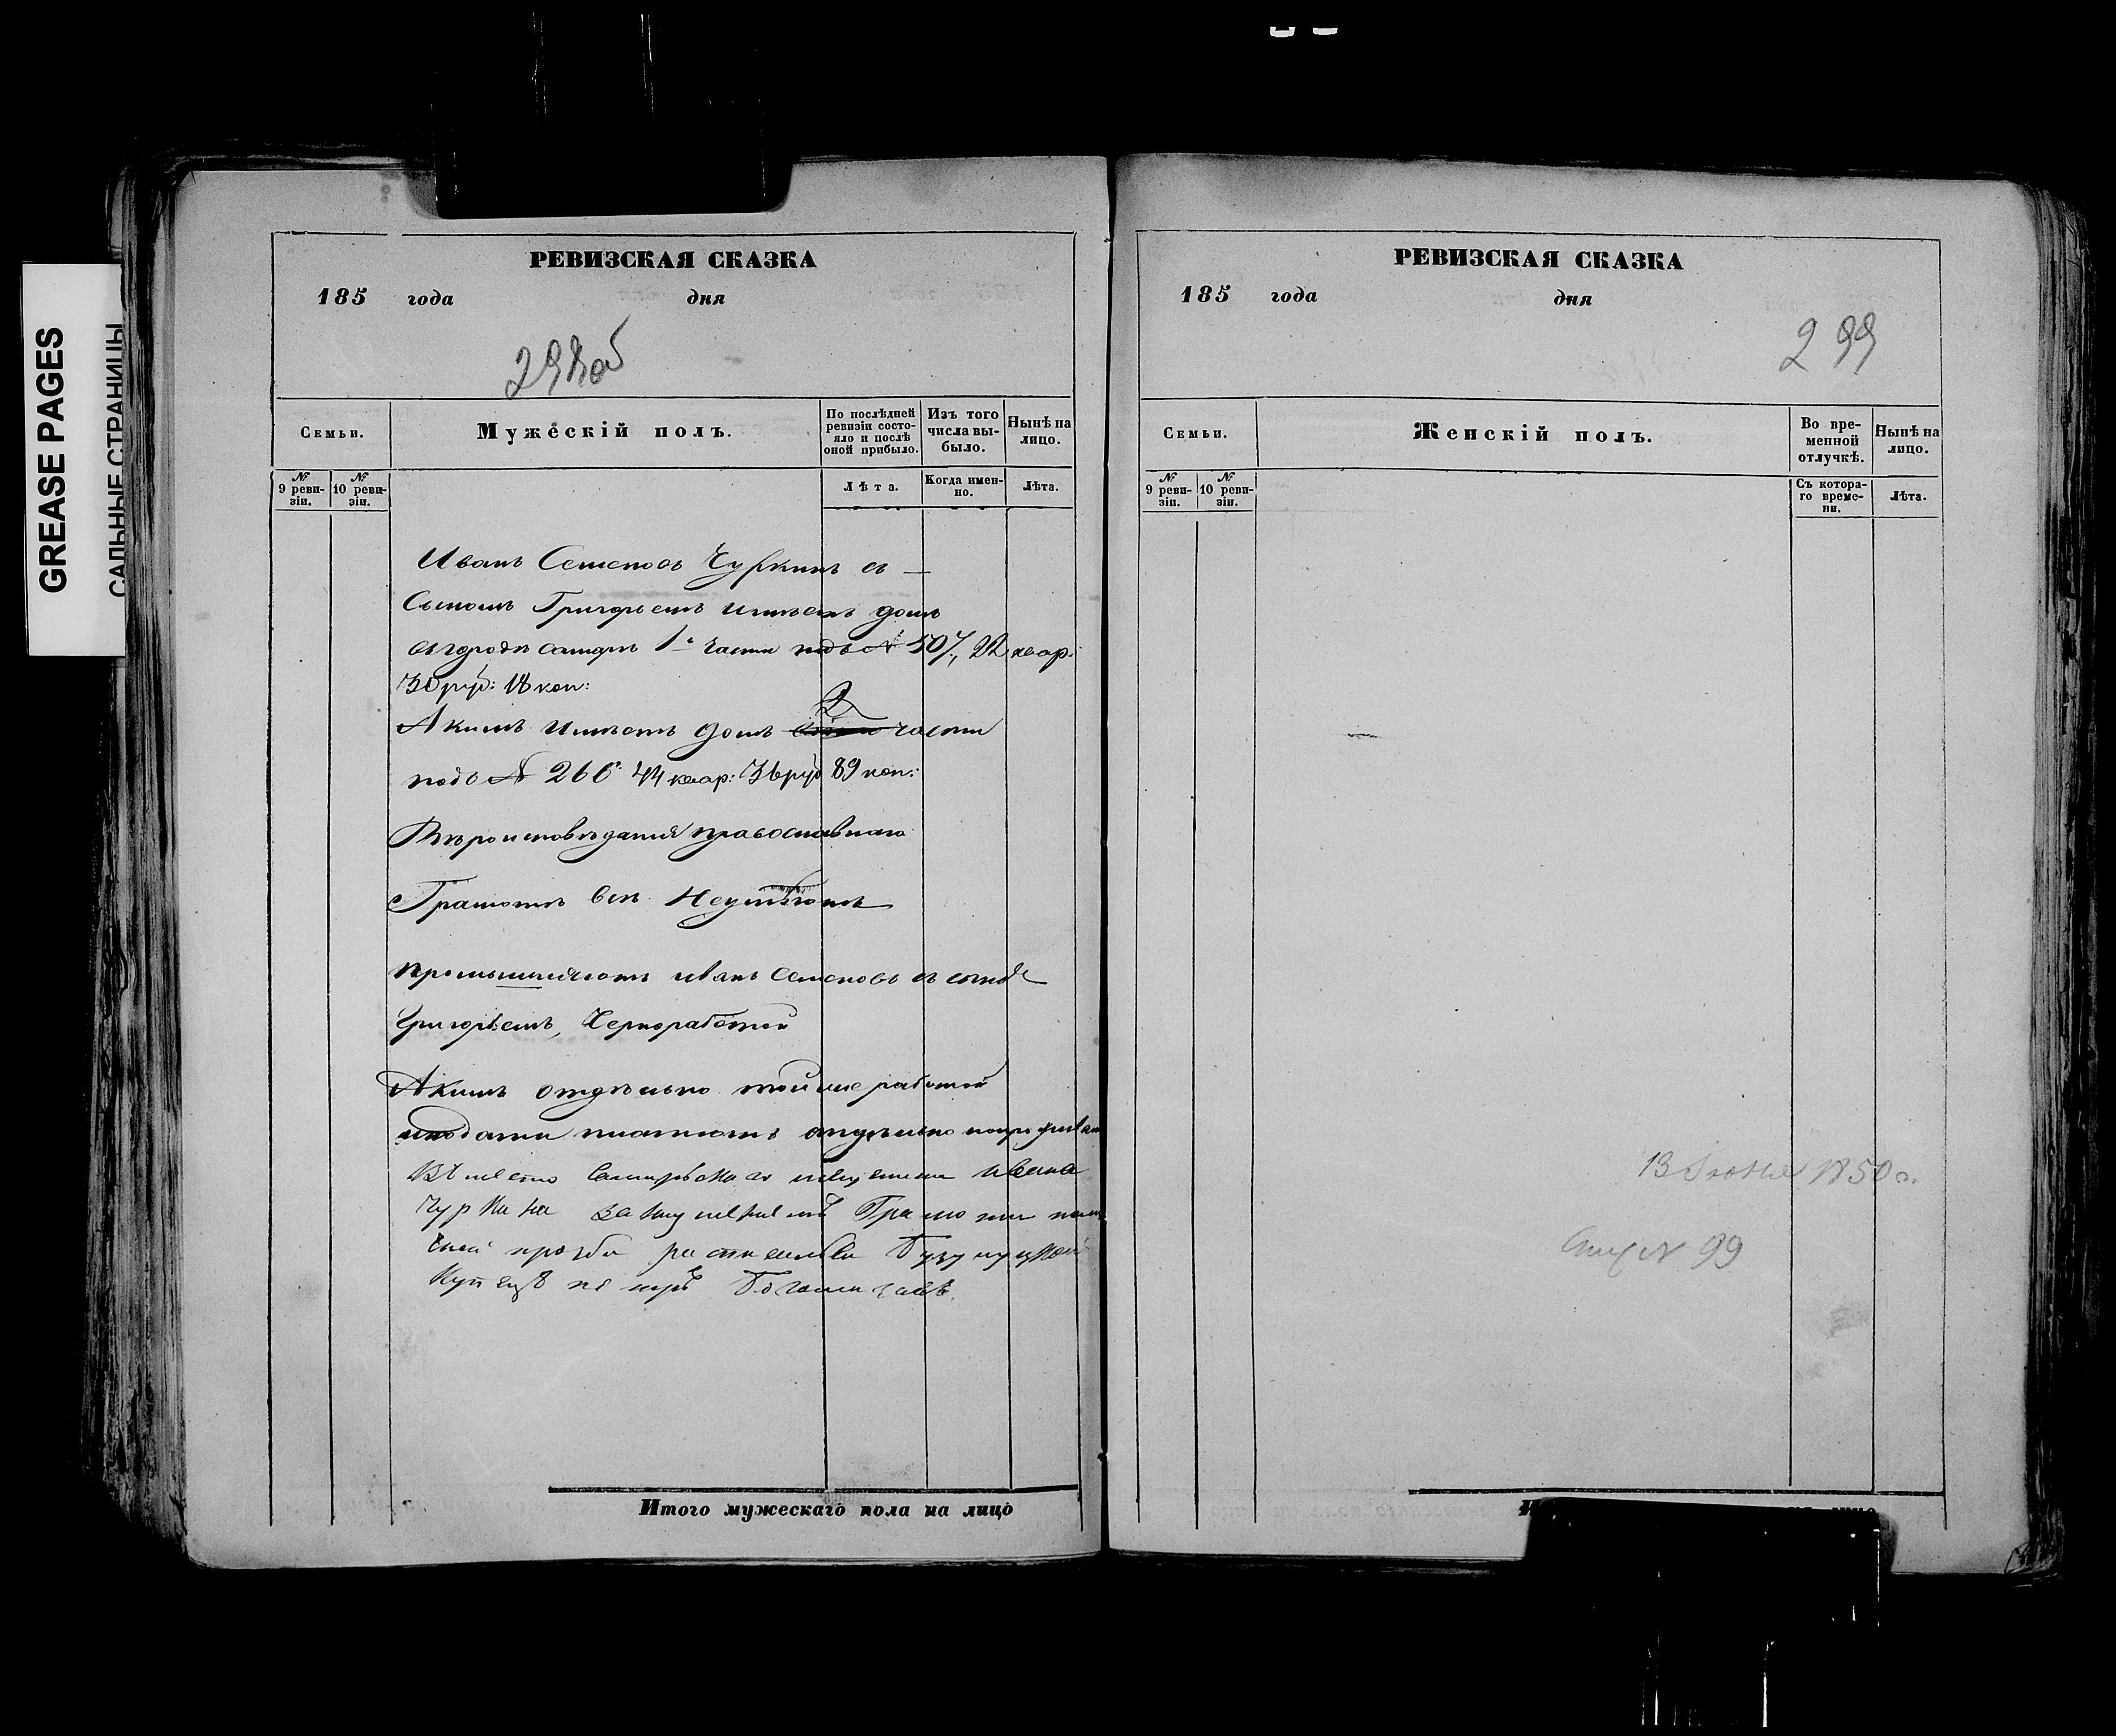 GREASE PAGES
САЛЬНЫЕ СТРАНИЦЫ
РЕВИЗСКАЯ СКАЗКА
185 года дня
298об
Семьи.
Мужескій полъ.
По послѣдней ревизіи состояло и послѣ оной прибыло.
Изъ того числа выбыло.
Нынѣ на лицо.
№ 9 ревизіи.
№ 10 ревизіи.
Лѣта.
Когда именно.
Лѣта.
Иванъ Семеновъ Чуркинъ съ —
Сыномъ Григорьемъ имѣетъ домъ
въ городѣ самарѣ 1й части подъ № 507, 22 квар:
30 руб: 18 коп:
Акимъ имѣетъ домъ 2 части
подъ № 266 44 квар: 36 руб 89 коп:
Вѣроисповѣданія православнаго
Грамотѣ всѣ Неумѣютъ
промышляютъ иванъ Семеновъ съ сыномъ
Григорьемъ, Чернработой
Акимъ отдѣльно тойже работой
иподати платитъ отдѣльно
Вместо ивана
Чуркина Грамоти
прозби Бузулуцкой
Купецъ
Итого мужескаго пола на лицо
РЕВИЗСКАЯ СКАЗКА
185 года дня
299
Семьи.
Женскій полъ.
Во временной отлучкѣ.
Нынѣ на лицо.
№ 9 ревизіи.
№ 10 ревизіи.
Съ котораго времени.
Лѣта.
13 Іюня 1850 г.
№ 99